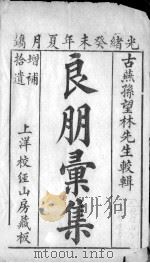 光緒癸未年夏月鐫
古燕孫望林先生較輯
良朋彙集
增補
拾遺
上洋校經山房藏板